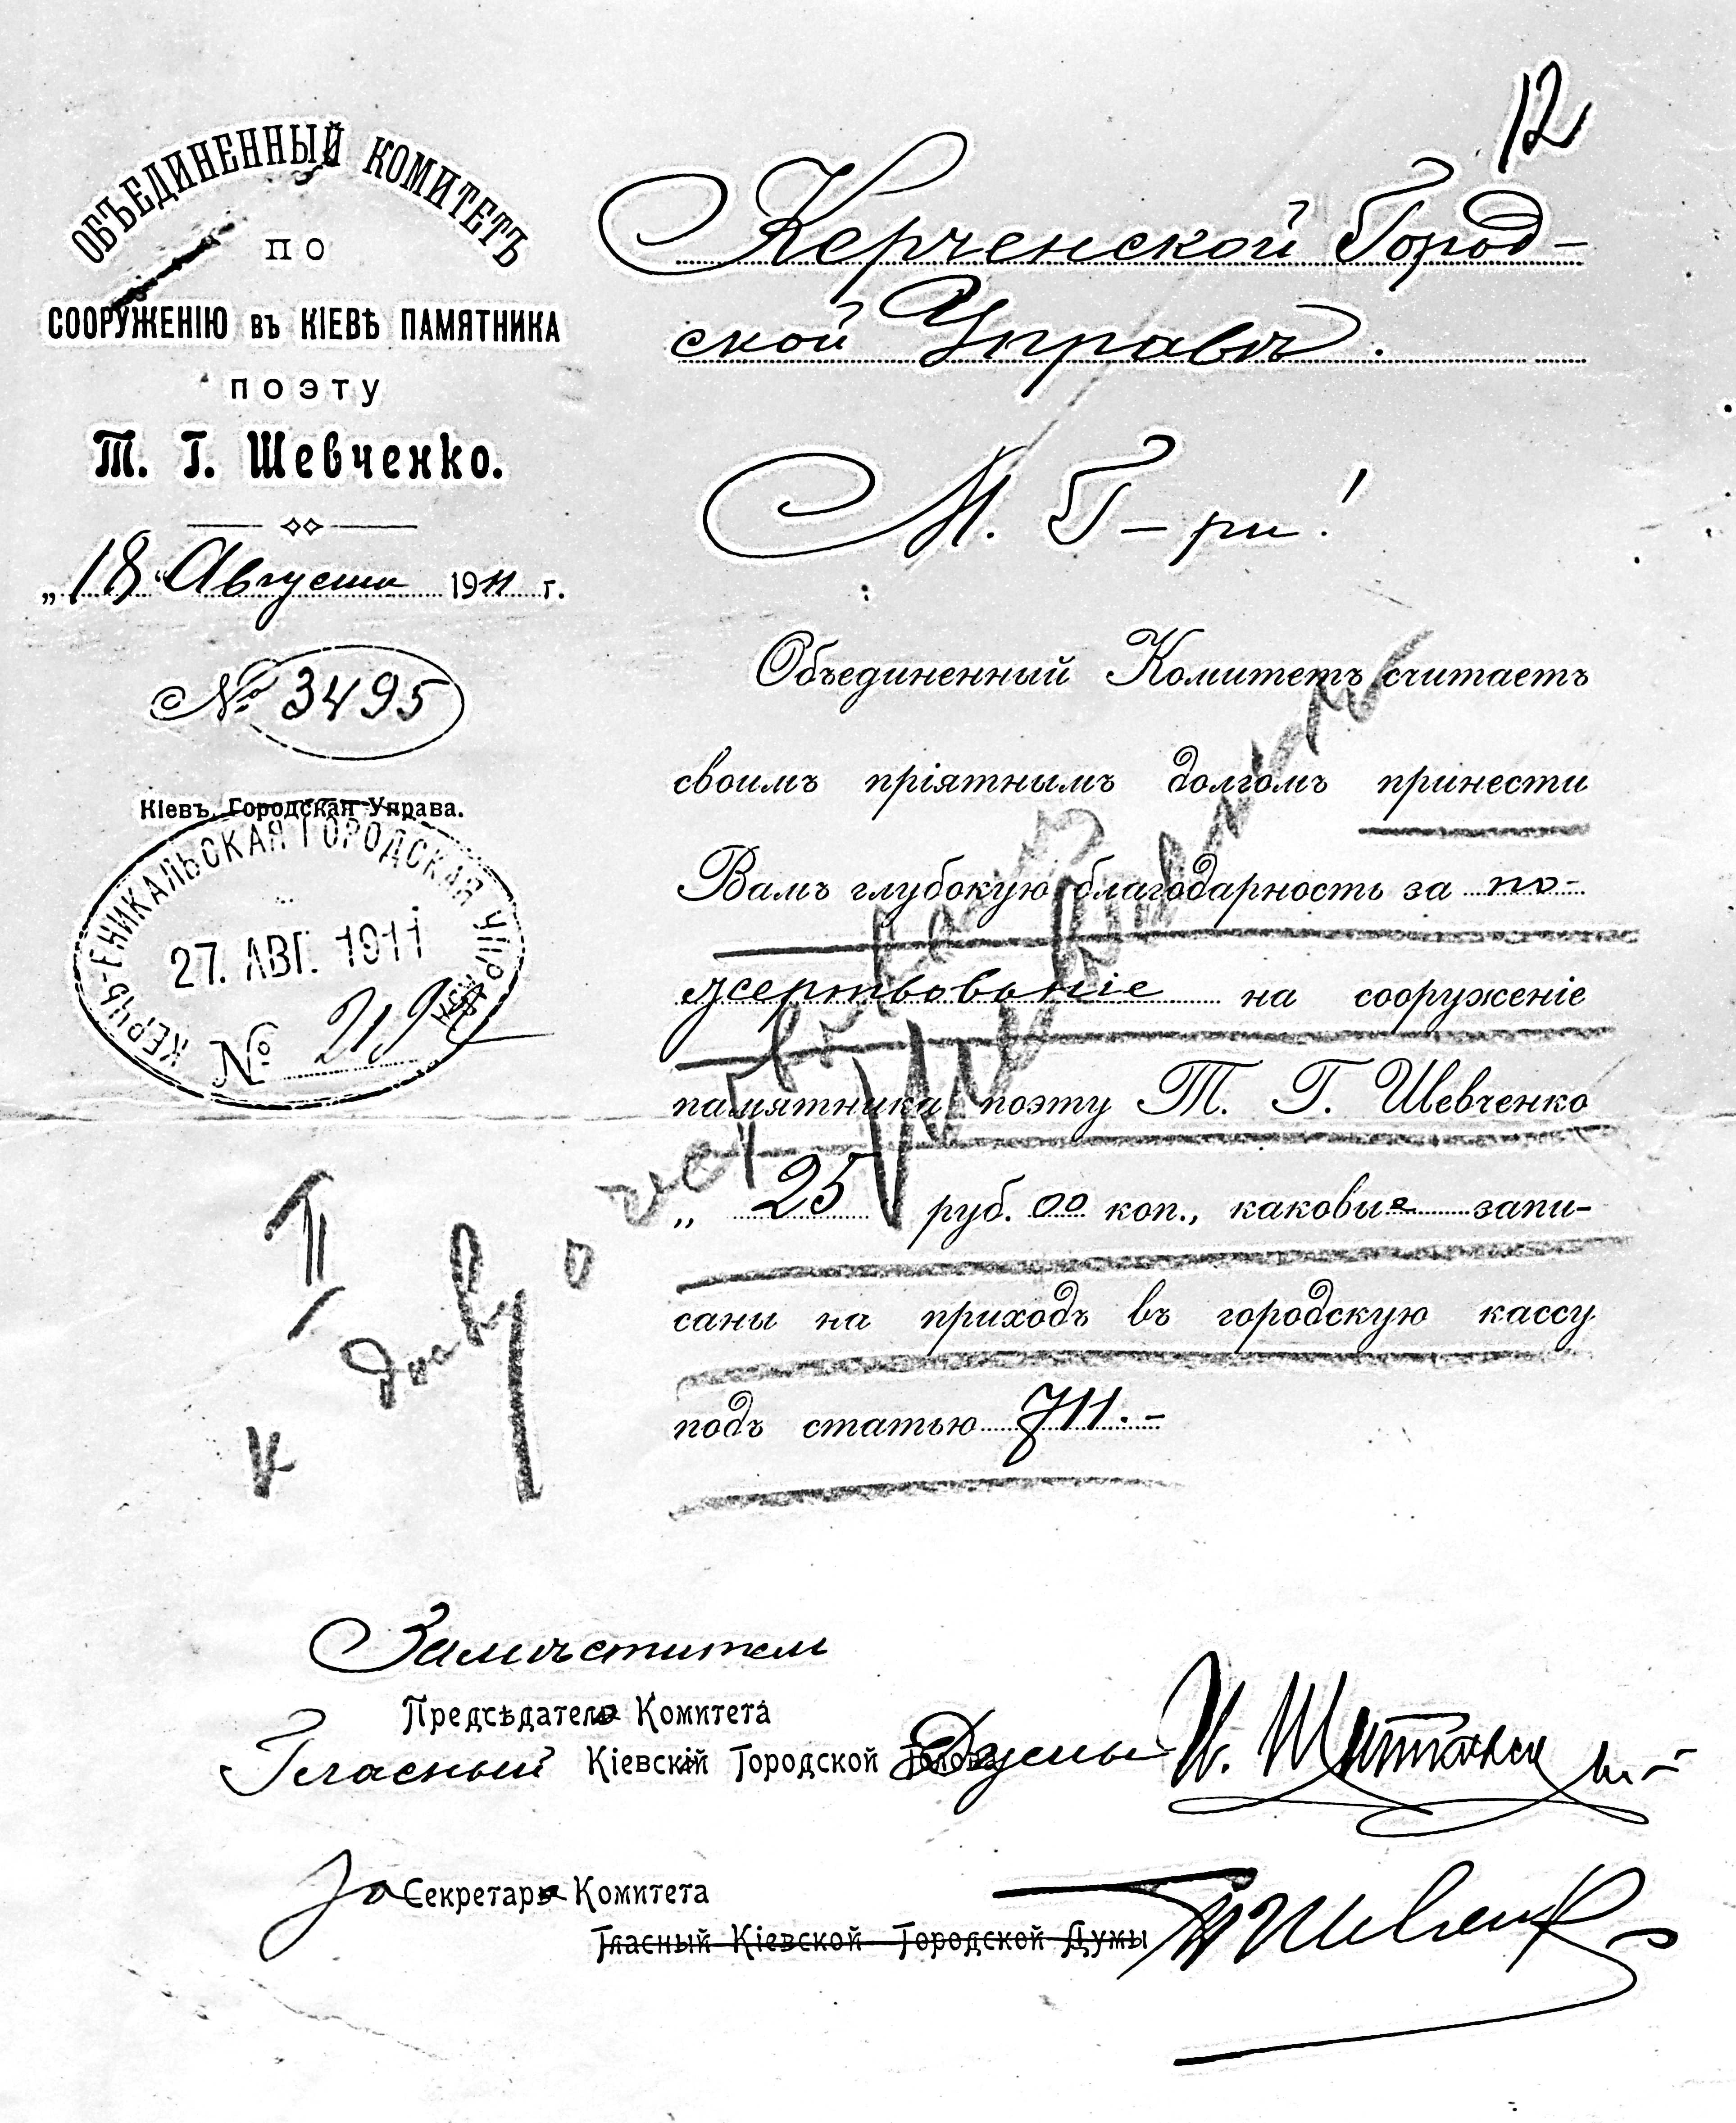 12
ОБЪЕДИНЕННЫЙ КОМИТЕТЪ
ПО
СООРУЖЕНІЮ ВЪ КІЕВѢ ПАМЯТНИКА
ПОЭТУ
Т. Г. Шевченко.
„18“ Августа 1911 г.
№ 3495
Кіевъ, Городская Управа.
КЕРЧЬ-ЕНИКАЛЬСКАЯ ГОРОДСКАЯ УПРАВА
27. АВГ. 1911
№
Керченской Город-
ской Управѣ.
М. Г-ри!
Объединенный Комитетъ считаетъ
своимъ пріятнымъ долгомъ принести
Вамъ глубокую благодарность за по-
жертвованіе на сооруженіе
памятника поэту Т. Г. Шевченко
„ 25 руб. 00 коп., каковые запи-
саны на приходъ въ городскую кассу
подъ статью 711.-
К
Замѣститель
Предсѣдателя Комитета
Гласный Кіевской Городской Думы
За Секретаря Комитета
Гласный Кіевской Городской Думы